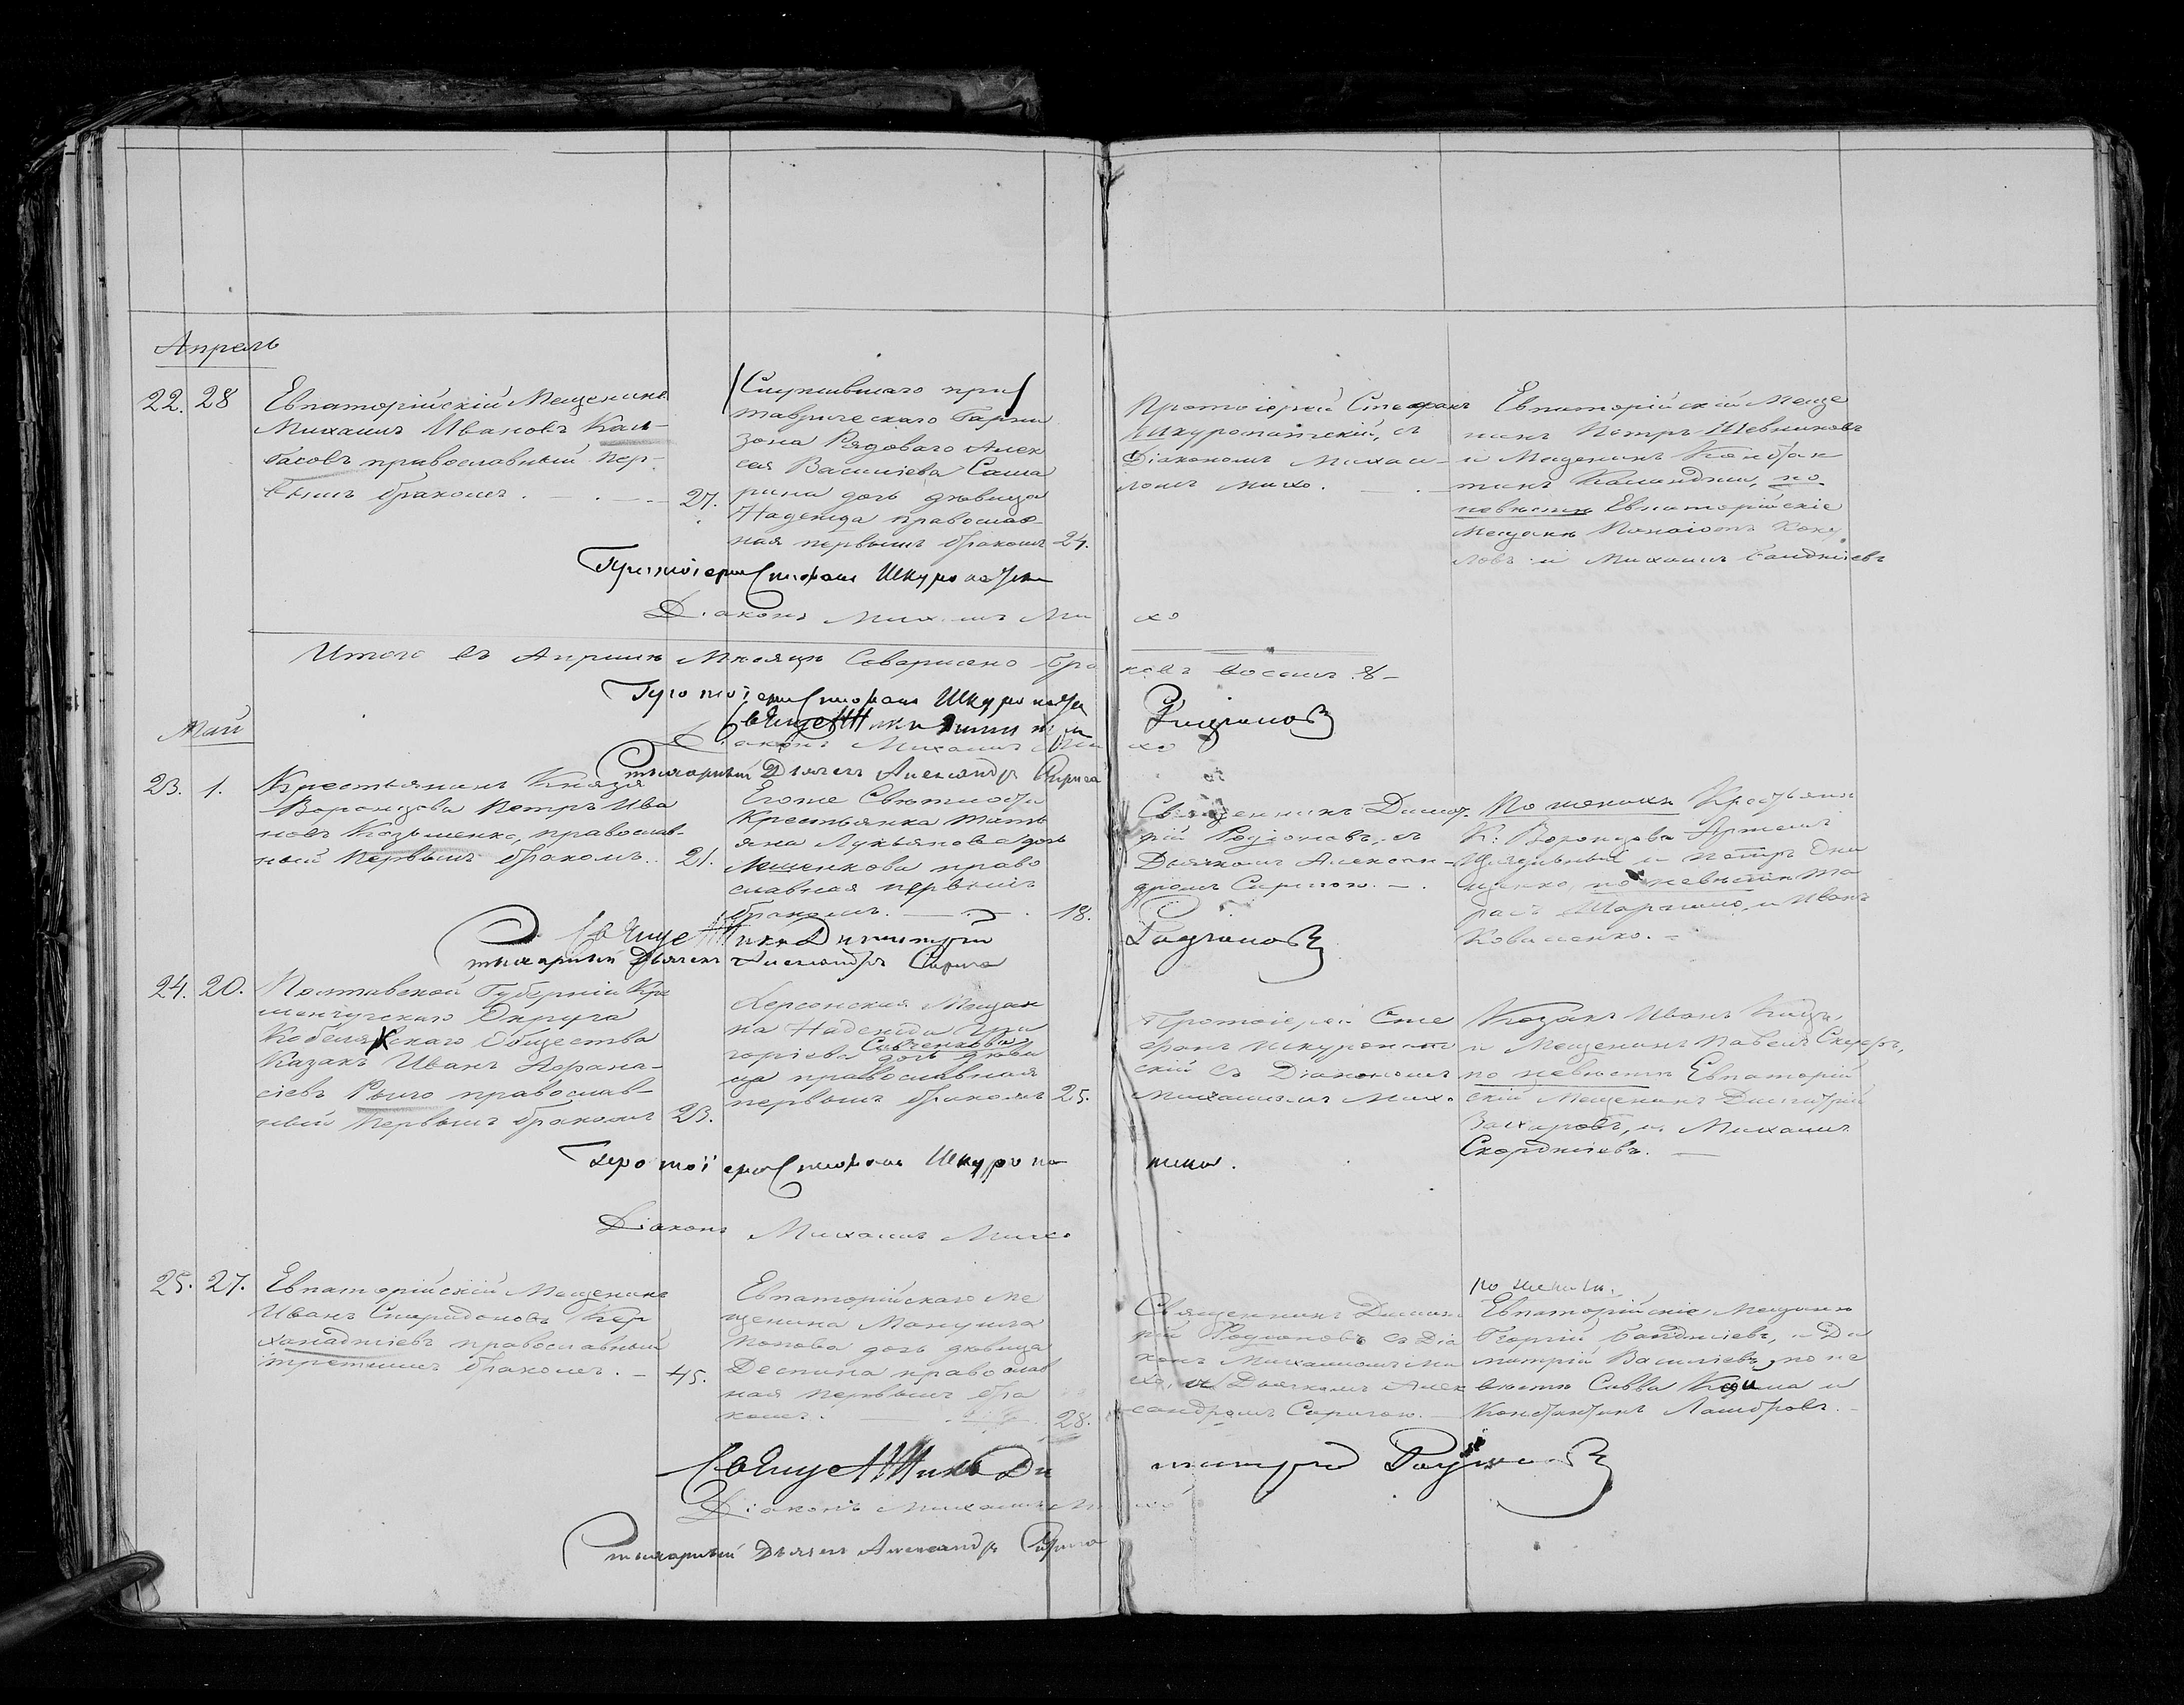 Апрель
22. 28
Евпаторійскій Мещанинъ
Михаилъ Ивановъ Кал-
басовъ православный пер-
вымъ бракомъ. 27.
Служившаго при
таврическаго Гарни
зона Рядоваго Алек
сея Васильева
дочь девица
Надежда православ-
ная первымъ бракомъ 24.
Протоіерей Стефанъ
Шкуропатскій, съ
Діакономъ Михаи-
ломъ Михо.
Евпаторійскій Меща
нинъ Петръ Шевниковъ
и Мещанинъ Констан
тинъ по
невесте Евпаторійскіе
Мещане Панаіотъ
и Михаилъ
Протоіерей Стефанъ Шкуропатскій
Діаконъ Михаилъ Михо
Итого въ Апреле Месяце Совершено бра
ковъ восемь 8 –
Протоіерей Стефанъ Шкуропатскій
Священникъ Димитрій Родіоновъ
Діаконъ Михаилъ Михо
Дьячекъ Александръ
Май
23. 1.
Крестьянинъ Князя
Воронцова Петръ Ива
новъ Козьменко, православ-
ный первымъ бракомъ. 21.
Егоже Светлости
Крестьянка Тать
яна Лукьянова дочь
право
славная первымъ
бракомъ. 18.
Священникъ Димит
рій Родіоновъ, съ
Дьячкомъ Алексан-
дромъ
По женихе Крестьяне
К: Воронцова Артемъ
и Петръ Они
щенко, по невесте Та
расъ и Иванъ
Коваленко. –
Священникъ Димитрій
Родіоновъ
Дьячекъ Александръ
24. 20.
Полтавской Губерніи Кре
менчугскаго Округа
Кобелякскаго Общества
Казакъ Иванъ Афана-
сіевъ Рыло православ-
ный первымъ бракомъ 23.
Херсонская Мещан
ка Надежда Гри
горіева Савченкова
дочь деви
ца православная
первымъ бракомъ 25.
Протоіерей Сте
фанъ Шкуропат
скій съ Діакономъ
Михаиломъ Михо
Козакъ Иванъ
и Мещанинъ Павелъ
по невесте Евпаторій
скій Мещанинъ Димитрій
Захаровъ, и Михаилъ
Скорджіевъ. –
Протоіерей Стефанъ Шкуропатскій.
Діаконъ Михаилъ Михо
25. 27.
Евпаторійскій Мещанинъ
Иванъ Спиридоновъ Кер
ханаджіевъ православный
третьимъ бракомъ. – 45.
Евпаторійскаго Ме
щанина Мануила
Попова дочь девица
Деспина православ
ная первымъ бра
комъ. 28.
Священникъ Димит
рій Родіоновъ съ Діа
кономъ Михаиломъ Ми
хо, и Дьячкомъ Алек
сандромъ
по жениху.
Евпаторійскіе Мещане
Георгій и Ди
митрій Васильевъ, по не
весте Савва и
Константинъ Ламбровъ. –
Священникъ Димитрій Родіоновъ
Діаконъ Михаилъ Михо
Дьячекъ Александръ